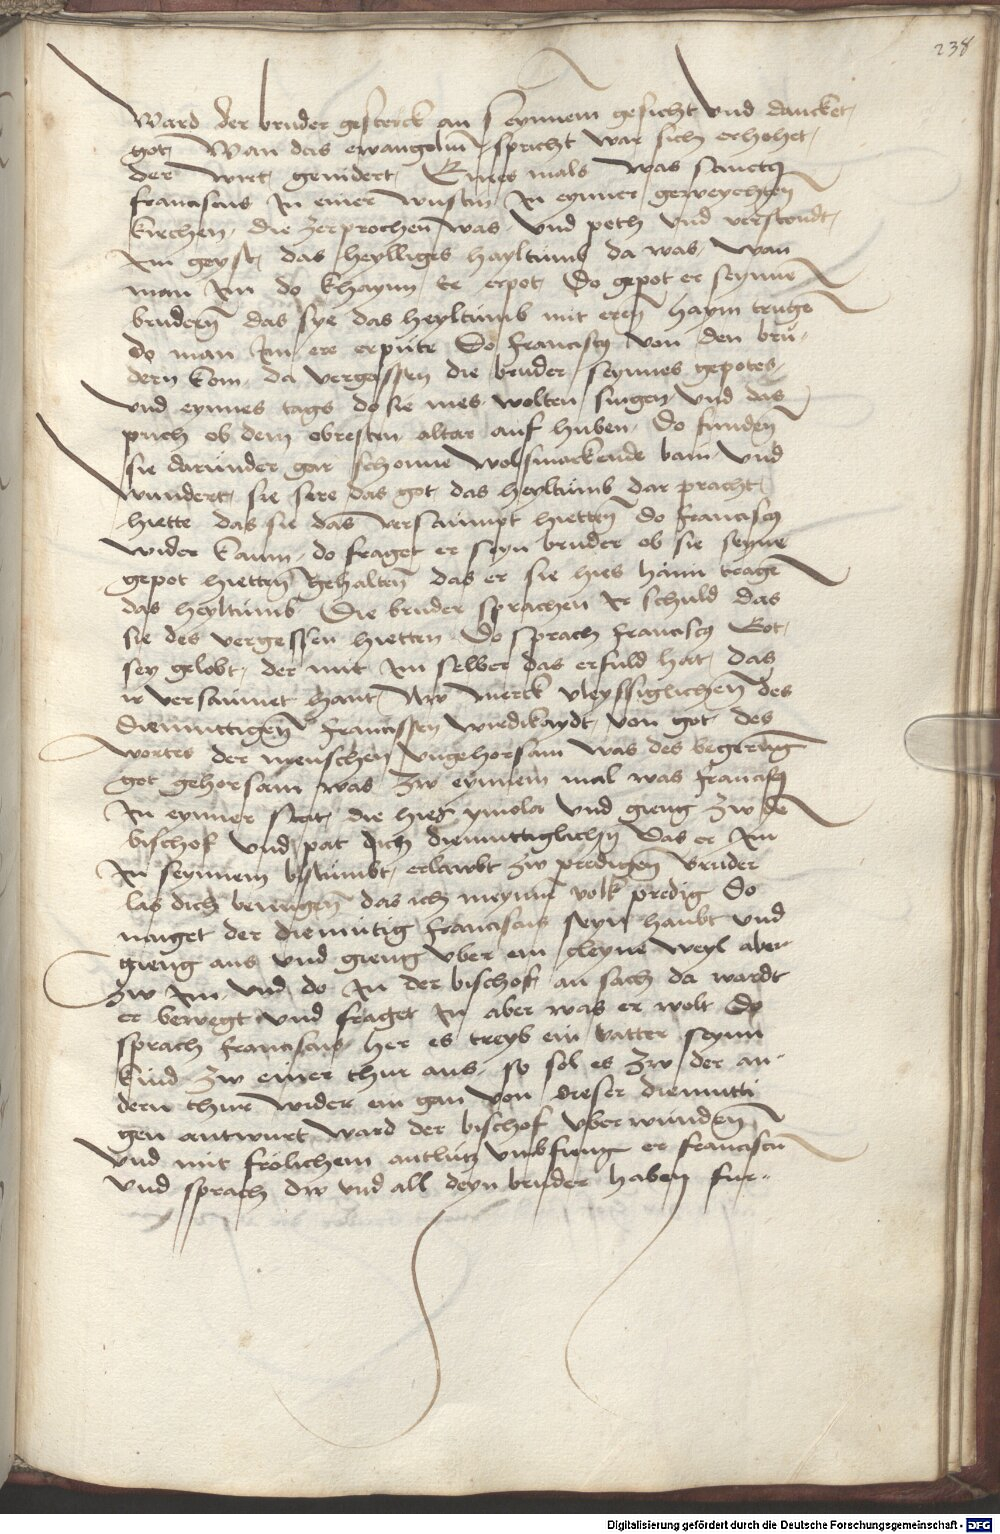 238
Ward der bruder gesterck an seynnem gesicht Und dancket
got Wan das ewangeliū spricht wer sich erhohet
der wirt genidert Eines mals was sanctꝫ
franciscus In einer wustin In eynner geweychten
kirchen die zerprochen was Und peth Und verstondt
Im geyst das heylliges hayltumb da was wan
man Im do khaynn Ere erpot Do gepot er seynnē
brudern̄ das sye das heyltumb mit eren̄ haym truge
do man Im ere erpute Do franciscꝫ von den bru-
dern kom da vergassen die bruder seynnes gepotes
Und eynnes tags do sie mes wolten singen Und das
puch ob dem obresten altar auf huben Do funden̄
sie darunder gar schonne wolsmackende bain Und
wundert sie sere das got das heyltumb dar pracht
hiette das sie das versaumpt hietten̄ Do franciscꝫ
wider kaum do fraget er seyn bruder ob sie seyne
gepot hietten̄ gehalten̄ das er sie hies haim trage
das heyltumb Die bruder sprachen Ir schuld das
sie des vergessen hietten Do sprach franciscꝫ Got
sey gelobt der mit Im selber das erfuld hat das
ir versaumet hant Nw merck vleyssiglichen̄ des
diemuttigen̄ francissen wirdikaydt von got des
wortes der menschen ungehorsam was des begerung
got gehorsam was Zw eynnem mal was franciscꝫ
In eynner stat die hies ymola Und gieng zw dē
bischof Und pat dich diemuttiglichen das er Im
In seynnem bistumbt erlawbt zw predigen̄ bruder
las dich benugen̄ das ich meynnē volk predig Do
naiget der diemutig franciscus seyn haubt Und
gieng aus Und gieng uber ein cleyne weyl aber
zw Im Und do In der bischof an sach da wardt
er bewegt Und fraget In aber was er wolt Do
sprach franciscus her es treyb ein vatter seynn
kind zw einer thur aus so sol es zw der an-
dern thur wider ein gan Von dieser diemutti
gen antwurt ward der bischof uberwunden̄
Und mit frolichem antlutz Umbfieng er franciscū
Und sprach dw Und all deyn bruder haben fur-
Digitalisierung gefördert durch die Deutsche Forschungsgemeinschaft - DFG